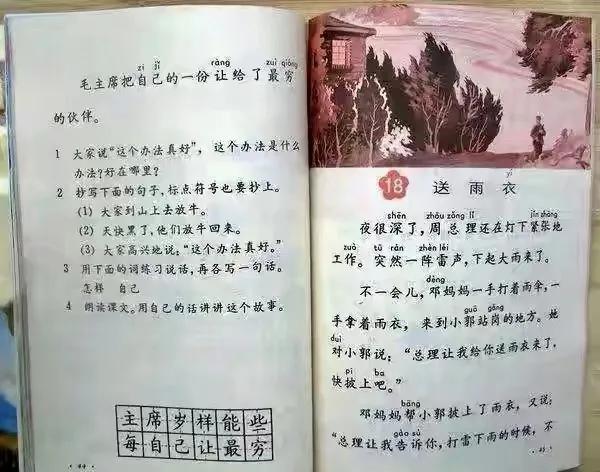 zì jǐ ràng zuì qióng
毛主席把自己的一份让给了最穷
的伙伴。
1 大家说“这个办法真好”，这个办法是什么
办法？好在哪里？
2 抄写下面的句子，标点符号也要抄上。
(1) 大家到山上去放牛。
(2) 天快黑了，他们放牛回来。
(3) 大家高兴地说：“这个办法真好。”
3 用下面的词练习说话，再各写一句话。
怎样 自己
4 朗读课文。用自己的话讲讲这个故事。
主席岁样能些
每自己让最穷
· 44 ·
yī
18 送雨衣
shēn zhōu zǒng lǐ jǐn zhāng
夜很深了，周总理还在灯下紧张地
zuò tū rán zhèn léi
工作。突然一阵雷声，下起大雨来了。
dèng
不一会儿，邓妈妈一手打着雨伞，一
guō gǎng
手拿着雨衣，来到小郭站岗的地方。她
duì
对小郭说：“总理让我给你送雨衣来了，
pī ba
快披上吧。”
bāng
邓妈妈帮小郭披上了雨衣，又说：
gào su
“总理让我告诉你，打雷下雨的时候，不
· 45 ·